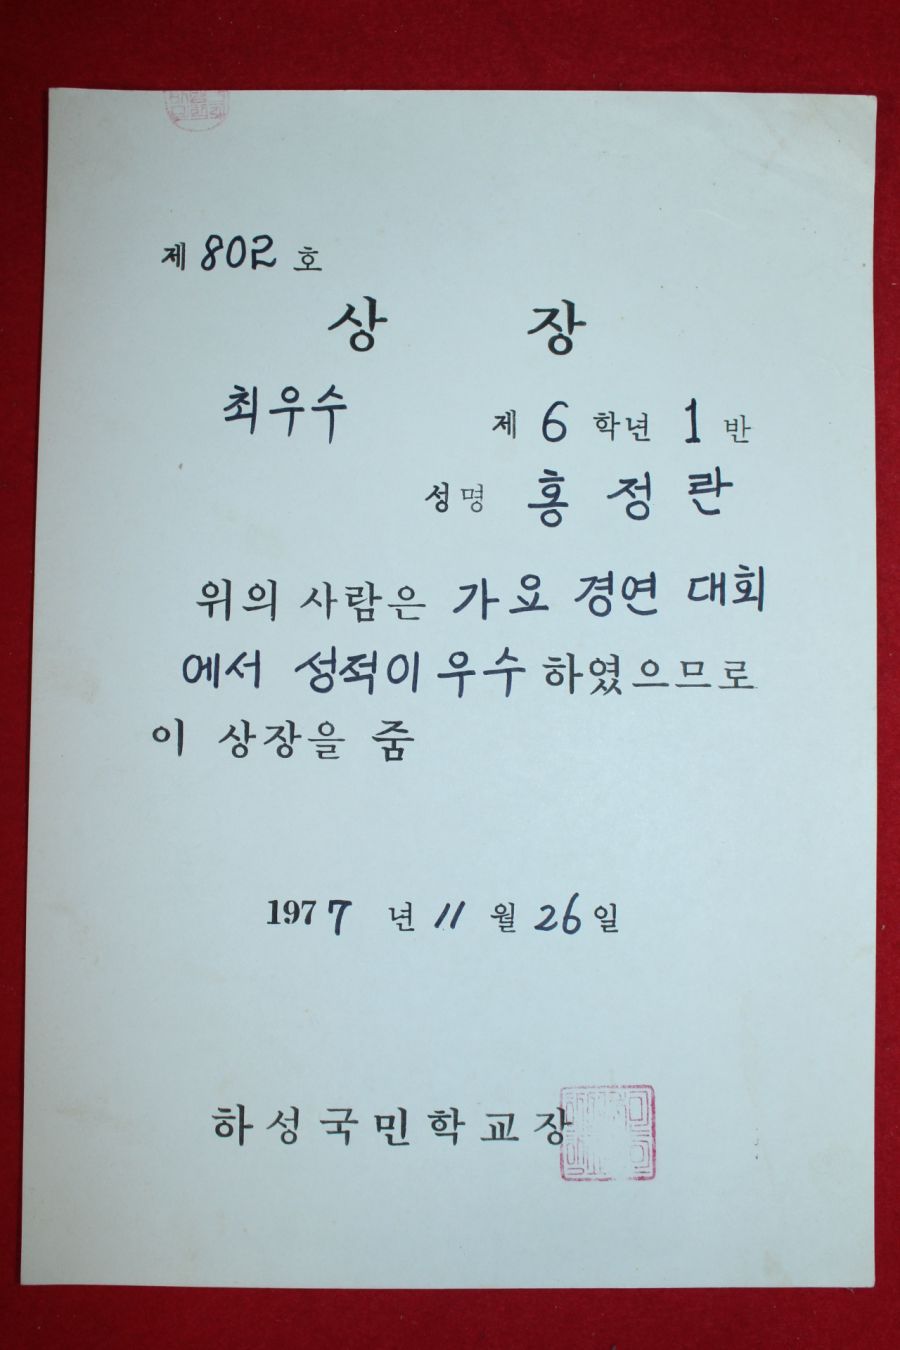 제 802 호
상 장
최우수
제 6 학년 1 반
성명 홍정란
위의 사람은 가요 경연 대회
에서 성적이 우수 하였으므로
이 상장을 줌
1977 년 11 월 26 일
하성국민학교장